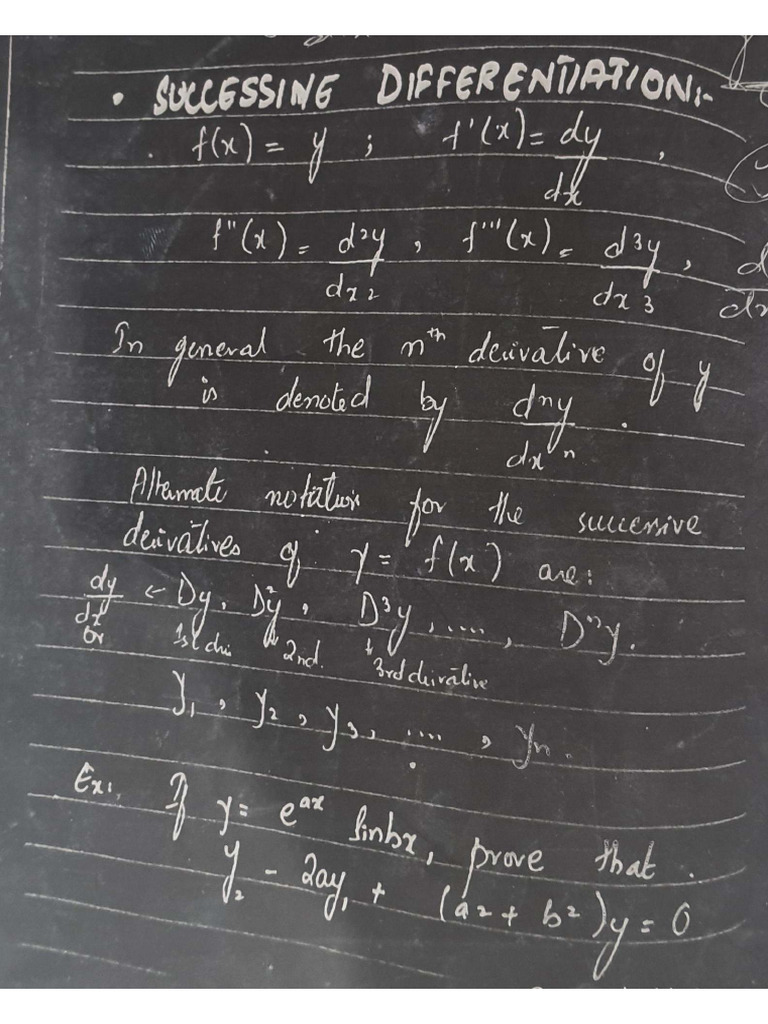 • SUCCESSING DIFFERENTIATION:-
f(x) = y ; f'(x) = dy/dx ,
f''(x) = d²y/dx², f'''(x) = d³y/dx³,
In general the nᵗʰ derivative of y
is denoted by dⁿy/dxⁿ.
Alternate notation for the successive
derivatives of y = f(x) are:
dy/dx ← Dy, D²y, D³y, ...., Dⁿy.
or 1st deri 2nd. 3rd derivative
y₁, y₂, y₃, ...., yₙ.
Ex:. If y = eᵃˣ sinbx, prove that.
y₂ - 2ay₁ + (a² + b²)y = 0